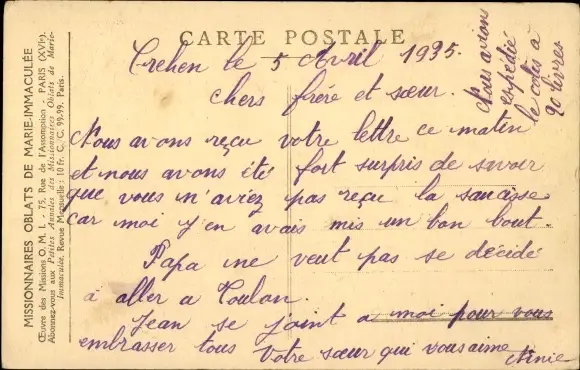 CARTE POSTALE
Crehen le 5 Avril 1935.
chers frère et sœur.
Nous avons reçu votre lettre ce matin
et nous avons été fort surpris de savoir
que vous n'aviez pas reçu la saucisse
car moi j'en avais mis un bon bout.
Papa ne veut pas se décidé
à aller a Toulon.
Jean se joint a moi pour vous
embrasser tous Votre sœur qui vous aime
nous avions
espédié
le colis à
90 livres
MISSIONNAIRES OBLATS DE MARIE-IMMACULÉE
Œuvre des Missions O. M. I. - 75, Rue de l'Assomption - PARIS (XVIe).
Abonnez-vous aux Petites Annales des Missionnaires Oblats de Marie-
Immaculée, Revue Mensuelle : 10 Fr. C. C. 99-99. Paris.